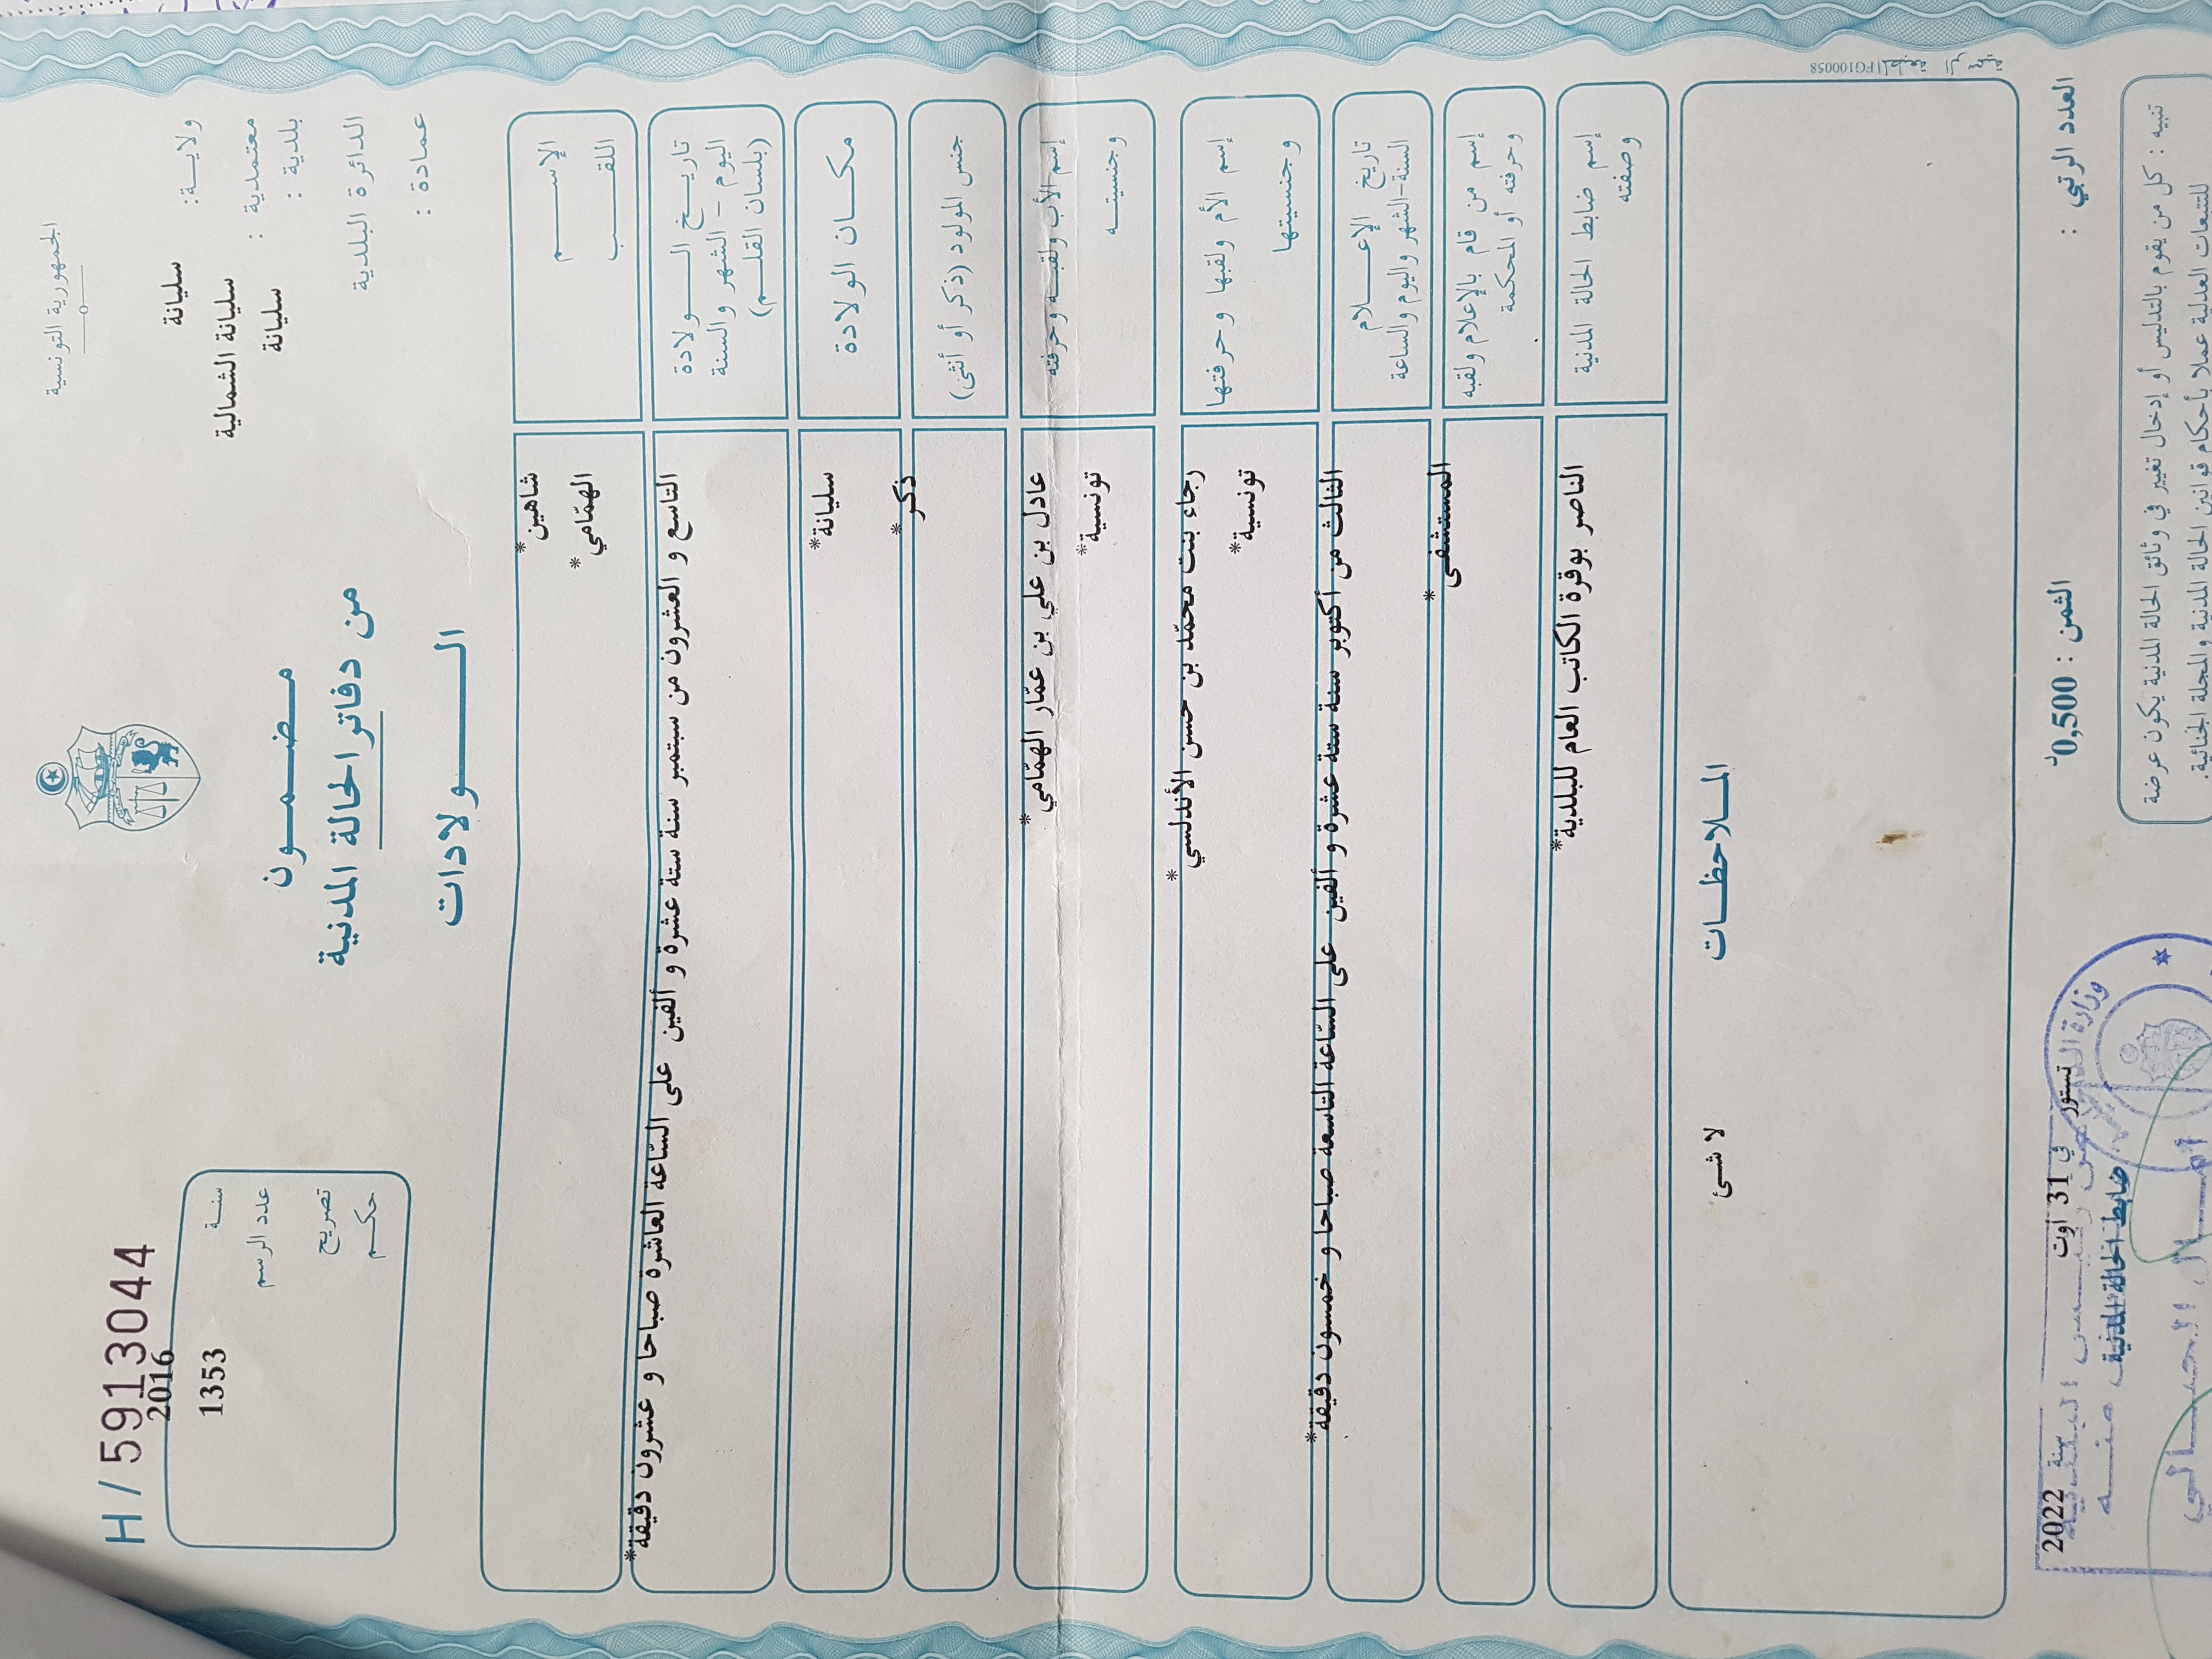 الجمهورية التونسية
H / 5913044
ولايـة: سليانة
معتمدية : سليانة الشمالية
بلدية : سليانة
الدائرة البلدية
عمادة :
مـضـمــون
من دفاتر الحالة المدنية
الــــولادات
سنـة 2016
عدد الرسم 1353
تصريح
حكـم
الإســـم شاهين*
اللقــب الهمّامي*
تاريـخ الـــولادة
اليوم - الشهر والسنة
(بلسان القلــم)
التاسع و العشرون من سبتمبر سنة ستة عشرة و ألفين على السّاعة العاشرة صباحا و عشرون دقيقة*
مكـان الولادة سليانة*
جنس المولود (ذكر أو أنثى) ذكر*
إسم الأب ولقبـه وحرفته عادل بن علي بن عمّار الهمّامي*
وجنسيتـه تونسية*
إسم الأم ولقبها وحرفتها رجاء بنت محمّد بن حسن الأندلسي*
وجنسيتها تونسية*
تاريخ الإعـــلام
السنة-الشهر واليوم والساعة
الثالث من أكتوبر سنة ستة عشرة و ألفين على السّاعة التاسعة صباحا و خمسون دقيقة*
إسم من قام بالإعلام ولقبه
وحرفته أو المحكمة
المستشفى*
إسم ضابط الحالة المدنية
وصفته
الناصر بوقرة الكاتب العام للبلدية*
المـلاحظـات
لا شئ
PG100058
العدد الرتبي :
الثمن : 0,500د
تستور في 31 أوت سنة 2022
ضابط الحالة المدنية
تنبيه : كل من يقوم بالتدليس أو إدخال تغيير في وثائق الحالة المدنية يكون عرضة
للتتبعات العدلية عملا بأحكام قوانين الحالة المدنية والمجلة الجنائية